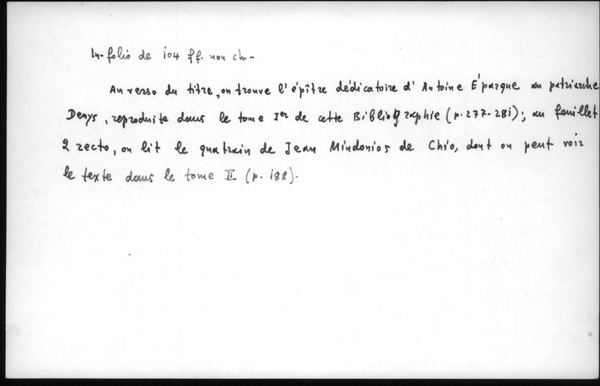 In-folio de 104 ff. non ch-
Au verso du titre, on trouve l'épître dédicatoire d'Antoine Éparque au patriarche
Denys, reproduite dans le tome Ier de cette Bibliographie (p. 277-281); au feuillet
2 recto, on lit le quatrain de Jean Mindonios de Chio, dont on peut voir
le texte dans le tome II (p. 188).